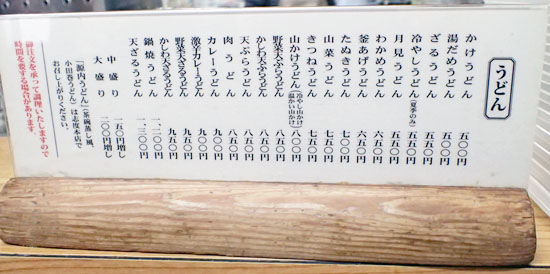 うどん
かけうどん 五〇〇円
湯だめうどん 五〇〇円
ざるうどん 五五〇円
冷やしうどん(夏季のみ) 五五〇円
月見うどん 五五〇円
わかめうどん 六五〇円
釜あげうどん 六五〇円
たぬきうどん 六〇〇円
山菜うどん 七五〇円
きつねうどん 七五〇円
山かけうどん(冷やし山かけ 温かい山かけ) 八〇〇円
野菜天ぷらうどん 八五〇円
かしわ天ぷらうどん 八五〇円
天ぷらうどん 八五〇円
肉うどん 八五〇円
カレーうどん 九五〇円
激辛カレーうどん 九五〇円
野菜天ざるうどん 九五〇円
かしわ天ざるうどん 九五〇円
鍋焼うどん 一、二〇〇円
天ざるうどん 一、三〇〇円
中盛り 一五〇円増し
大盛り 二〇〇円増し
「源内うどん」(茶碗蒸し風、
小田巻うどん)は志度本店で
お召し上がりください。
御注文を承って調理いたしますので
時間を要する場合があります。